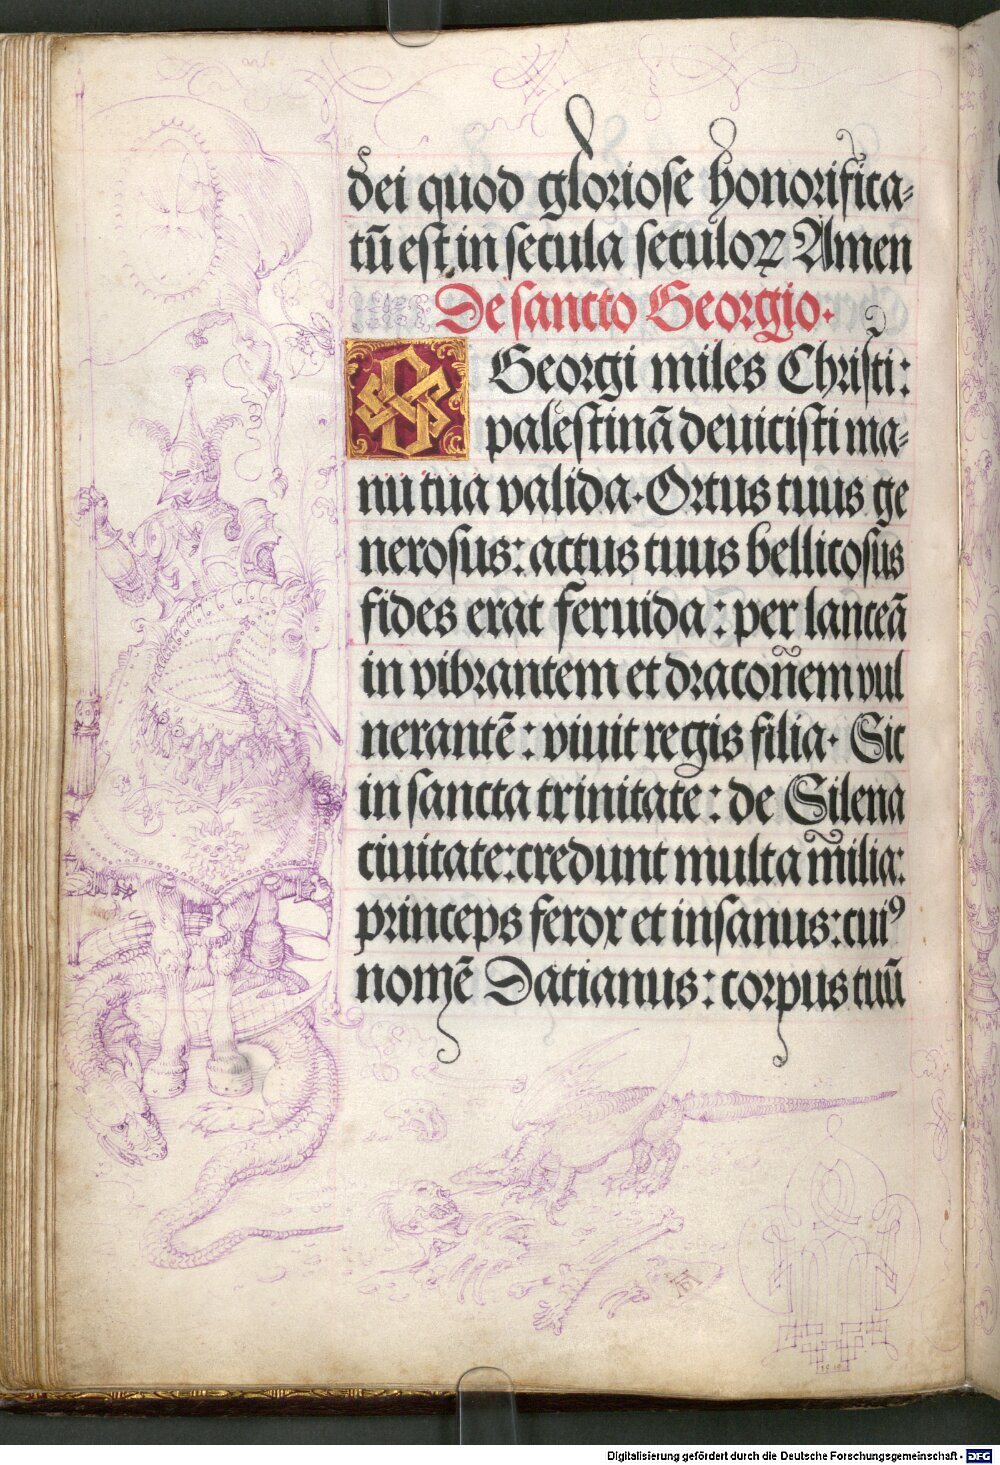 dei quod gloriose honorifica⸗
tū est in secula seculoꝝ Amen
De sancto Georgio.
O Georgi miles Christi:
palestinā deuicisti ma⸗
nu tua valida. Ortus tuus ge
nerosus: actus tuus bellicosus
fides erat feruida: per lanceā
in vibrantem et draconem vul
nerantē: viuit regis filia. Sic
in sancta trinitate: de Silena
ciuitate: credunt multa milia:
princeps ferox et insanus: cuiꝰ
nomē Datianus: corpus tuū
AD
Digitalisierung gefördert durch die Deutsche Forschungsgemeinschaft - DFG